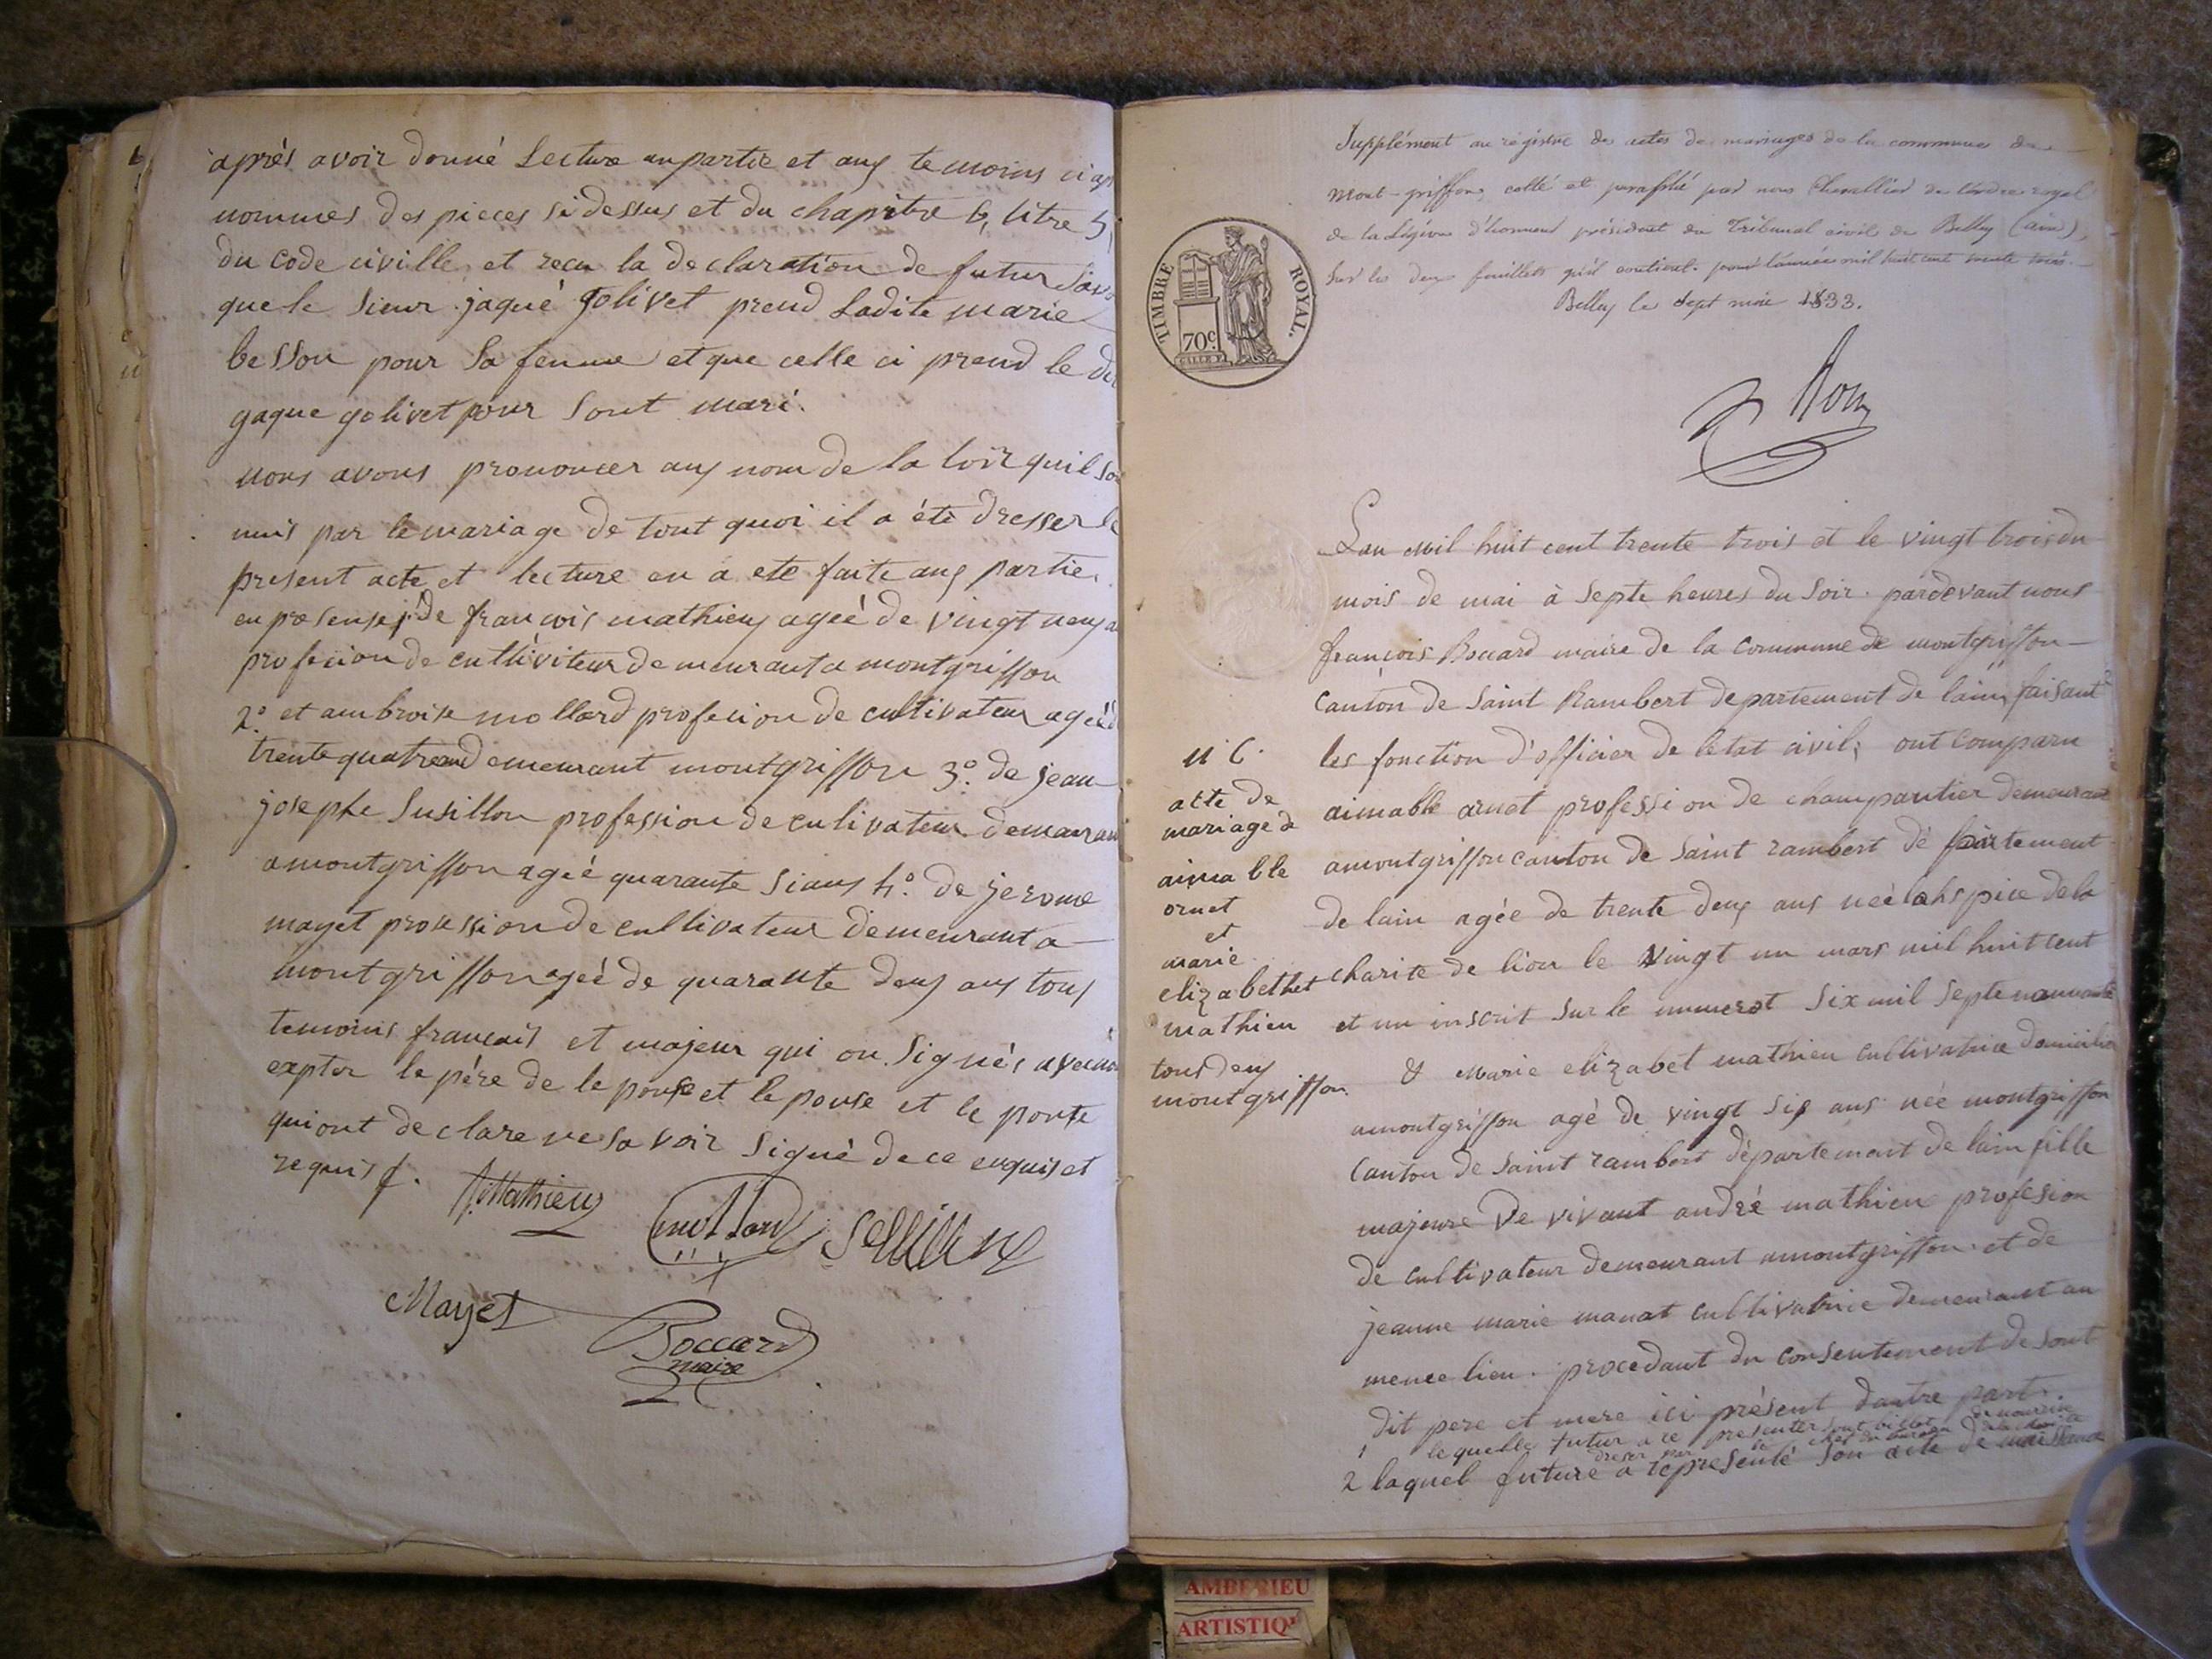 après avoir donné Lecture au partie et aux temoins ci ap
nommes des pieces si dessus et du chapitre 6, titre 5
du code civille et recu la declaration de futur
que le sieur jaque golivet prend Ladite marie
besson pour sa femme et que celle ci prend le di
gaque golivet pour sont mari.
nous avons prononcer aux nom de la loix quil so
unis par le mariage de tout quoi il a été dresser le
present acte et lecture en a ete faite aux partie
en presense 1º de francois mathieux ageé de vingt neuf a
profecion de cultiviteur demeurant a montgriffon
2º et ambroise mollard profecion de cultivateur ageé d
trente quatre an demeurant montgriffon 3º. de jean
josephe Susillon profession de culivateur demeuran
a montgriffon ageé quarante si ans 4º. de jerome
mayet profession de cultivateur demeurant a
montgriffon ageé de quarante deux ans tous
temoins francais et majeur qui on signés avec no
expter le père de le pouse et le pouse et le poute
qui ont declare ne savoir signé de ce enquis et
requis f.
f. Mathieux
mollard
Mayet
Boccard
maire
Supplément au régistre des actes de mariages de la commune de
Mont-griffon, cotté et paraphé par nous Chevallier de l'ordre royal
de la Légion d'honneur président du Tribunal civil de Belley (ain),
Sur les deux feuillets qu'il contient. pour l'année mil huit cent trente trois.
Belley le sept mai 1833.
TIMBRE ROYAL.
70c
Lan Mil huit cent trente trois et le vingt trois du
mois de mai à septe heures du soir. pardevant nous
françois Bouard maire de la commune de montgriffon
canton de saint Rambert departement de lain, faisant
les fonction d'officier de letat civil; ont comparu
aimable arnet profession de champantier demeurant
amontgriffon canton de saint rambert dé partement
de lain agée de trente deux ans neé a hspice de la
charite de lion le vingt un mars mil huit cent
et un inscrit sur le numerot six mil septe
& Marie elizabet mathieu cultivatrice domicilie
amontgriffon agé de vingt six ans née montgriffon
canton de saint rambert département de lain fille
majeure De vivant andré mathieu profesion
de cultivateur demeurant amontgriffon. et de
jeanne marie manat cultivatrice demeurant au
meme lieu. procedant du consentement de sont
dit pere et mere ici présent dautre part.
1 lequelle futur a ce presenter sont billet de nourrice
dreser par le chef du bureau
2 laquel future a representé son acte de naissance
n 6.
acte de
mariage de
aimable
ornet
et
marie
elizabethet
mathieu
tous deux
montgriffon.
AMBERIEU
ARTISTIQU